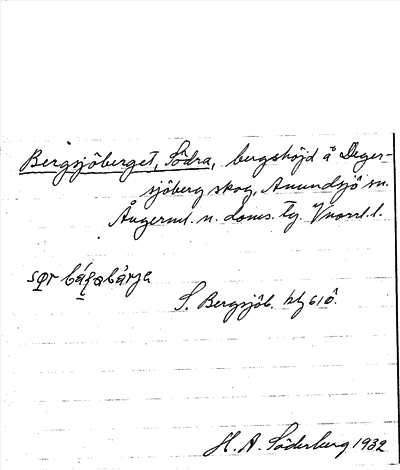 Bergsjöberget, Södra, bergshöjd å Deger-
sjöberg skog, Anundsjö sn.
Ångerml. n. doms. tg. Vnorrl. l.
S. Bergsjöb. htz 610.
H. A. Söderberg 1932